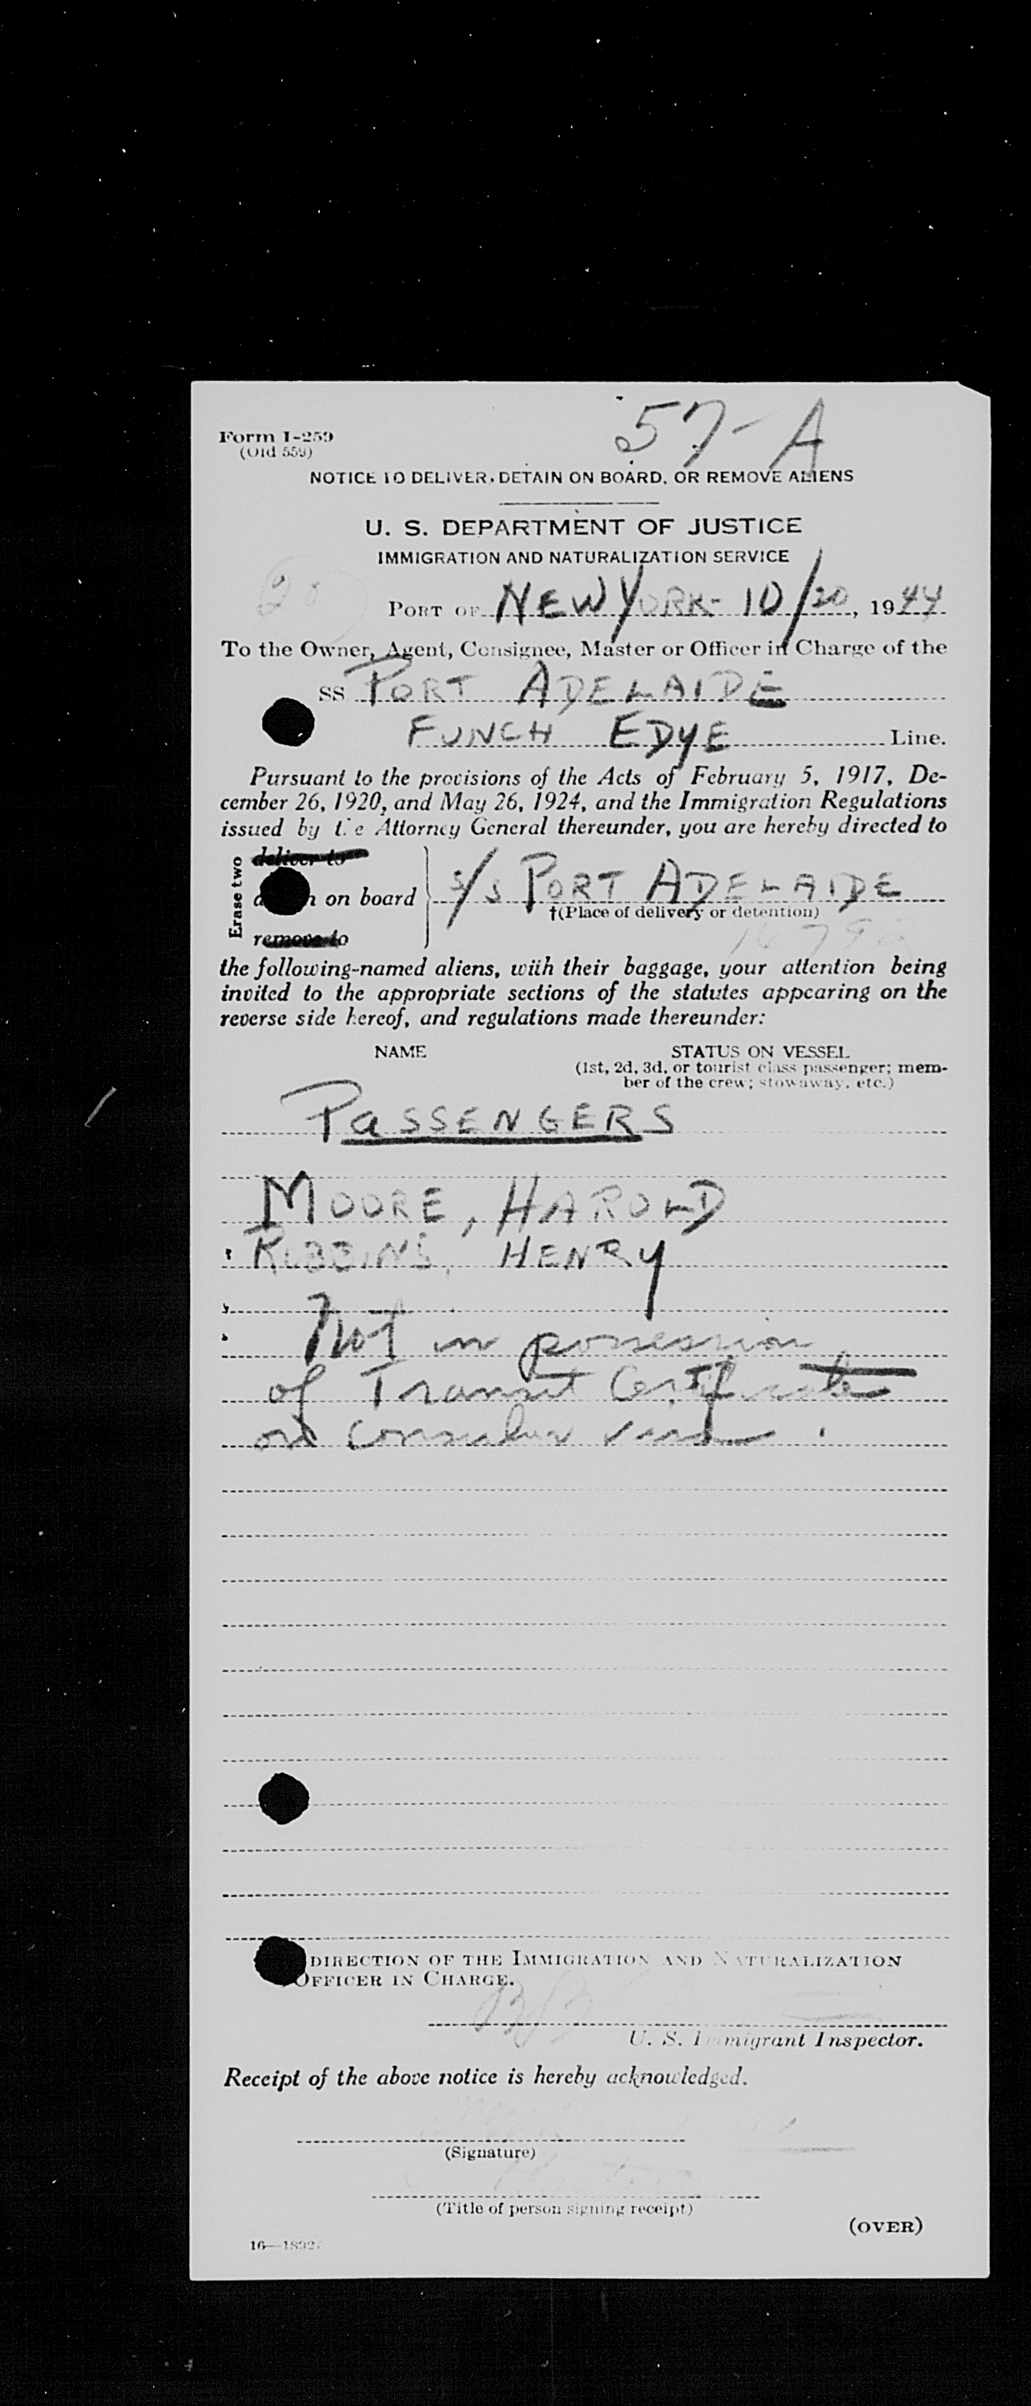 57-A
Form I-259
(Old 559)
NOTICE TO DELIVER, DETAIN ON BOARD, OR REMOVE ALIENS
U. S. DEPARTMENT OF JUSTICE
IMMIGRATION AND NATURALIZATION SERVICE
20
PORT OF NEW YORK - 10/20, 1944
To the Owner, Agent, Consignee, Master or Officer in Charge of the
SS PORT ADELAIDE
FUNCH EDYE Line.
Pursuant to the provisions of the Acts of February 5, 1917, De-
cember 26, 1920, and May 26, 1924, and the Immigration Regulations
issued by the Attorney General thereunder, you are hereby directed to
Erase two
deliver to
on board
remove to
s/s PORT ADELAIDE
†(Place of delivery or detention)
the following-named aliens, with their baggage, your attention being
invited to the appropriate sections of the statutes appearing on the
reverse side hereof, and regulations made thereunder:
NAME STATUS ON VESSEL
(1st, 2d, 3d, or tourist class passenger; mem-
ber of the crew; stowaway, etc.)
PASSENGERS
MOORE, HAROLD
ROBBINS, HENRY
Not in possession
of Transit Certificate
or consular visa.
DIRECTION OF THE IMMIGRATION AND NATURALIZATION
OFFICER IN CHARGE.
U. S. Immigrant Inspector.
Receipt of the above notice is hereby acknowledged.
(Signature)
(Title of person signing receipt)
(OVER)